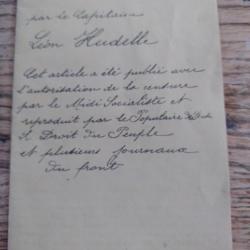 par le Capitaine
Léon Hudelle
Cet article a été publié avec
l'autorisation de la censure
par le Midi Socialiste et
reproduit par le Populaire
le Droit du Peuple
et plusieurs journaux
du front